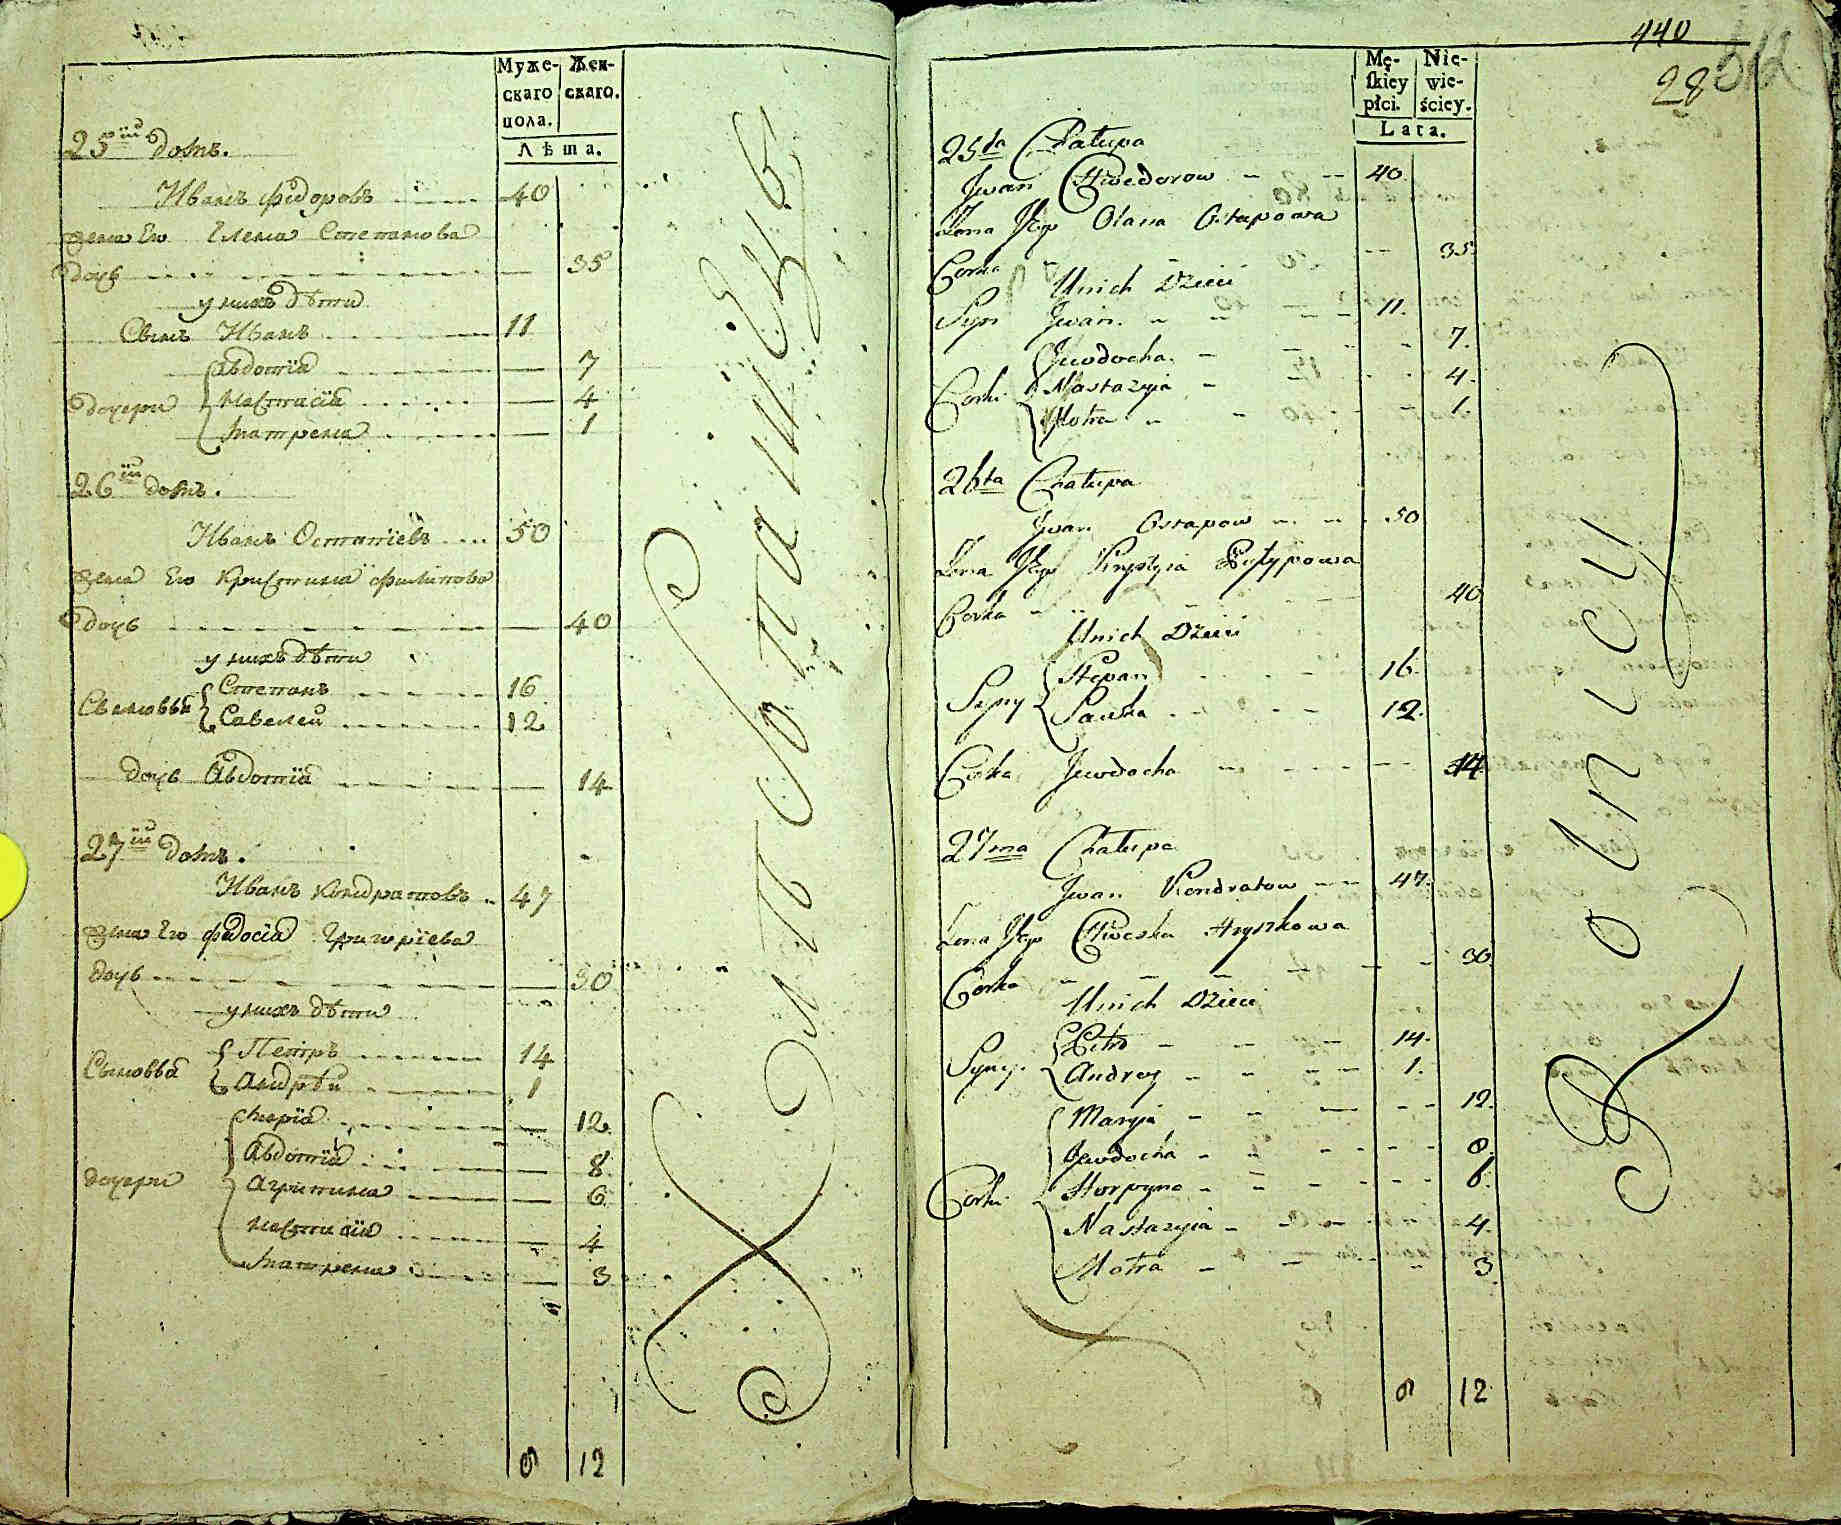 Муже-
скаго
пола.
Жен-
скаго.
Лѣта.
25ій домъ.
Иванъ Федоровъ 40
жена Его Елена Степанова
дочь 35
у нихъ дѣти
Сынъ Иванъ 11
дочери
Авдотїа 7
Настасїа 4
Матрена 1
26ій домъ.
Иванъ Остапїевъ 50
жена Его Кристина Филипова
дочь 40
у нихъ дѣти
Сыновья
Степанъ 16
Савелей 12
дочь Авдотїа 14
27ій домъ.
Иванъ Кондратовъ 47
жена Его Федосїа Григорїева
дочь 30
у нихъ дѣти
Сыновья
Петръ 14
Андрѣй 1
дочери
Марїа 12
Авдотїа 8
Агрипина 6
Настасїа 4
Матрена 3
12
440
28
Mę-
skiey
płci.
Nie-
wie-
ściey.
Lata.
25ta Chałupa
Jwan Chwedorow 40
Żona Jego Olana Ostapowa
Corka 35
Unich Dzieci
Syn Jwan 11.
Corki
Jewdocha 7.
Nastazyia 4.
Motra 1.
26ta Chałupa
Jwan Ostapow 50
Żona Jego Krystyia Filypowa
Corka 40
Unich Dzieci
Syny
Stepan 16.
Sawka 12.
Corka Jewdocha 14
27ma Chałupa
Jwan Kondratow 47.
Żona Jego Chweska Hryszkowa
Corka 30.
Unich Dzieci
Syny.
Petro 14.
Andrey 1.
Corki
Maryia 12.
Jewdocha 8.
Horpyna 6.
Nastazyia 4.
Motra 3.
12